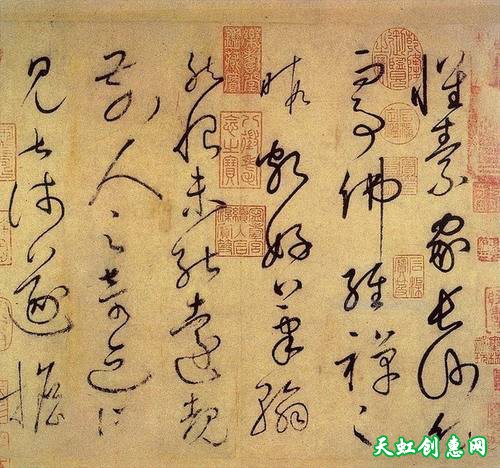 懷素家長沙幼
而事佛經禪之
暇頗好筆翰
然恨未能遠覩
前人之奇迹所
見甚淺遂擔
八徵耄念之寶
天虹创惠网